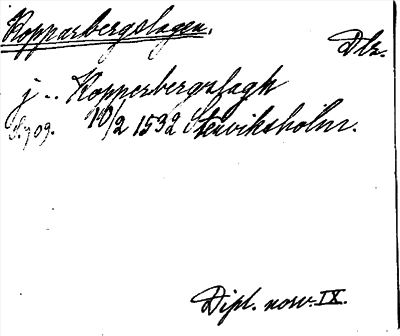 Kopparbergslagen.
Dlr.
j .. Kopperbergslagh
S. 709. 10/2 1532 Stenviksholm.
Dipl. norv. IX.